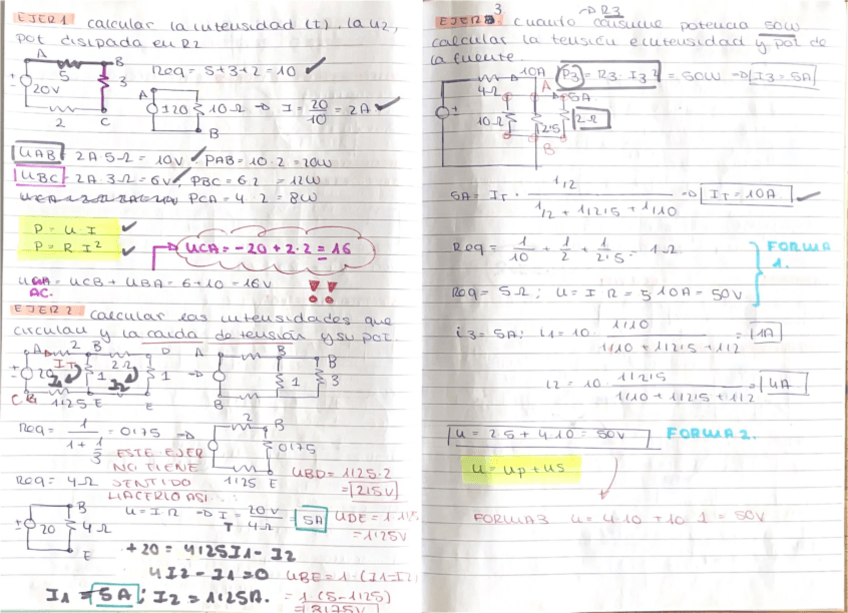 EJER 1 calcular la intensidad (I), la U2,
pot disipada en R2
A
B
5
3
20V
2
C
Req = 5+3+2 = 10 ✓
A
120
10Ω
B
→ I = 20/10 = 2A ✓
UAB - 2A·5Ω = 10V ✓ PAB = 10·2 = 20W
UBC - 2A·3Ω = 6V ✓ PBC = 6·2 = 12W
PCA = 4·2 = 8W
P = U·I ✓
P = R·I² ✓
UCA = -20 + 2·2 = 16
= UCB + UBA = 6+10 = 16V
AC.
EJER 2 calcular las intensidades que
circulan y la caida de tensión y su pot.
A 2 B D
20 IT 1 2Ω 1
I1 I2
1'25 E E
A B B
1 3
B
Req = 1/(1 + 1/3) = 0'75 →
2 B
0'75
1'25 E
ESTE EJER
NO TIENE
SENTIDO
HACERLO ASI...
Req = 4Ω
UBD = 1'125·2
= 2'25V
U = I·R → I = 20V/4Ω = 5A
T
UDE = 1·1'125
= 1'125V
B
20
4Ω
E
+20 = 4'25I1 - I2
4I2 - I1 = 0
I1 = 5A; I2 = 1'125A.
UBE = 1·(I1-I2)
= 1·(5-1'125)
= 3'175V
EJER 3 cuando → R3 consume potencia 50W
calcular la tensión e intensidad y pot de
la fuente.
10A
4Ω
A
P3 = R3·I3² = 50W → I3 = 5A
5A
10Ω
2'5
2Ω
B
5A = IT · (1/2)/(1/2 + 1/2'5 + 1/10) → IT = 10A ✓
Req = 1/10 + 1/2 + 1/2'5 = 1Ω
FORMA
1.
Req = 5Ω; U = I·R = 5·10A = 50V
i3 = 5A; i1 = 10 · (1/10)/(1/10 + 1/2'5 + 1/2) = 1A
i2 = 10 · (1/2'5)/(1/10 + 1/2'5 + 1/2) = 4A
U = 2·5 + 4·10 = 50V FORMA 2.
U = Up + Us
FORMA 3 U = 4·10 + 10·1 = 50V